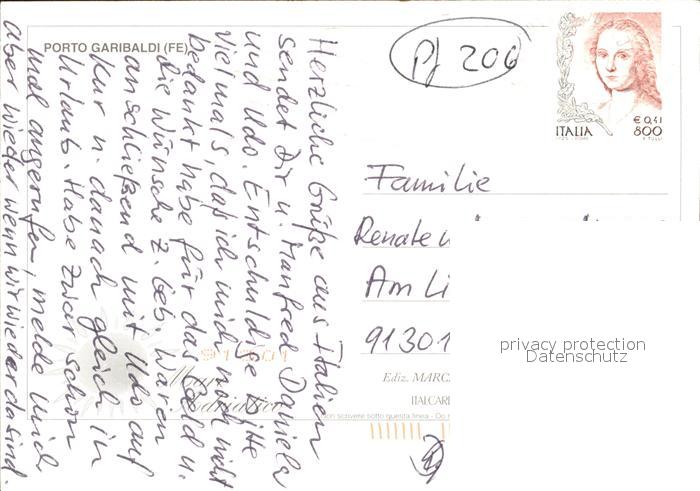 PORTO GARIBALDI (FE)
Herzliche Grüße aus Italien
sendet Dir u. Manfred Daniela
und Udo. Entschuldige bitte
vielmals, daß ich mich noch nicht
bedankt habe für das Geld u.
die Wünsche z. Geb. Waren
anschließend mit Udo auf
Kur u. danach gleich in
Urlaub. Habe zwar schon
mal angerufen, melde mich
aber wieder wenn wir wieder da sind.
Pf 206
€ 0,41
ITALIA 800
Familie
Renate u
Am Li
91301
privacy protection
Datenschutz
Ediz. MARC
ITALCAR
Non scrivere sotto questa linea - Do
Mare
Adriatico